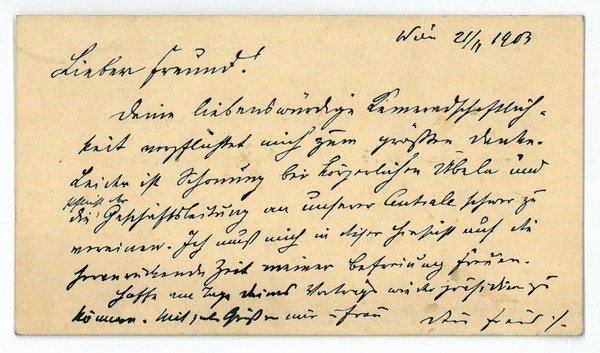 Wien 21/II 1903
Lieber Freund!
Deine liebenswürdige Kameradschaftlich-
keit verpflichtet mich zum größten Danke.
Leider ist Schonung bei körperlichen Übeln und
die Geschäftsleitung an unserer Centrale schwer zu
vereinen. Ich muß mich in dieser Hinsicht auf die
heranrückende Zeit meiner Befreiung freuen.
Hoffe am Tage deines Vortrags wieder präsidieren zu
können. Mit Grüßen Frau
Dein